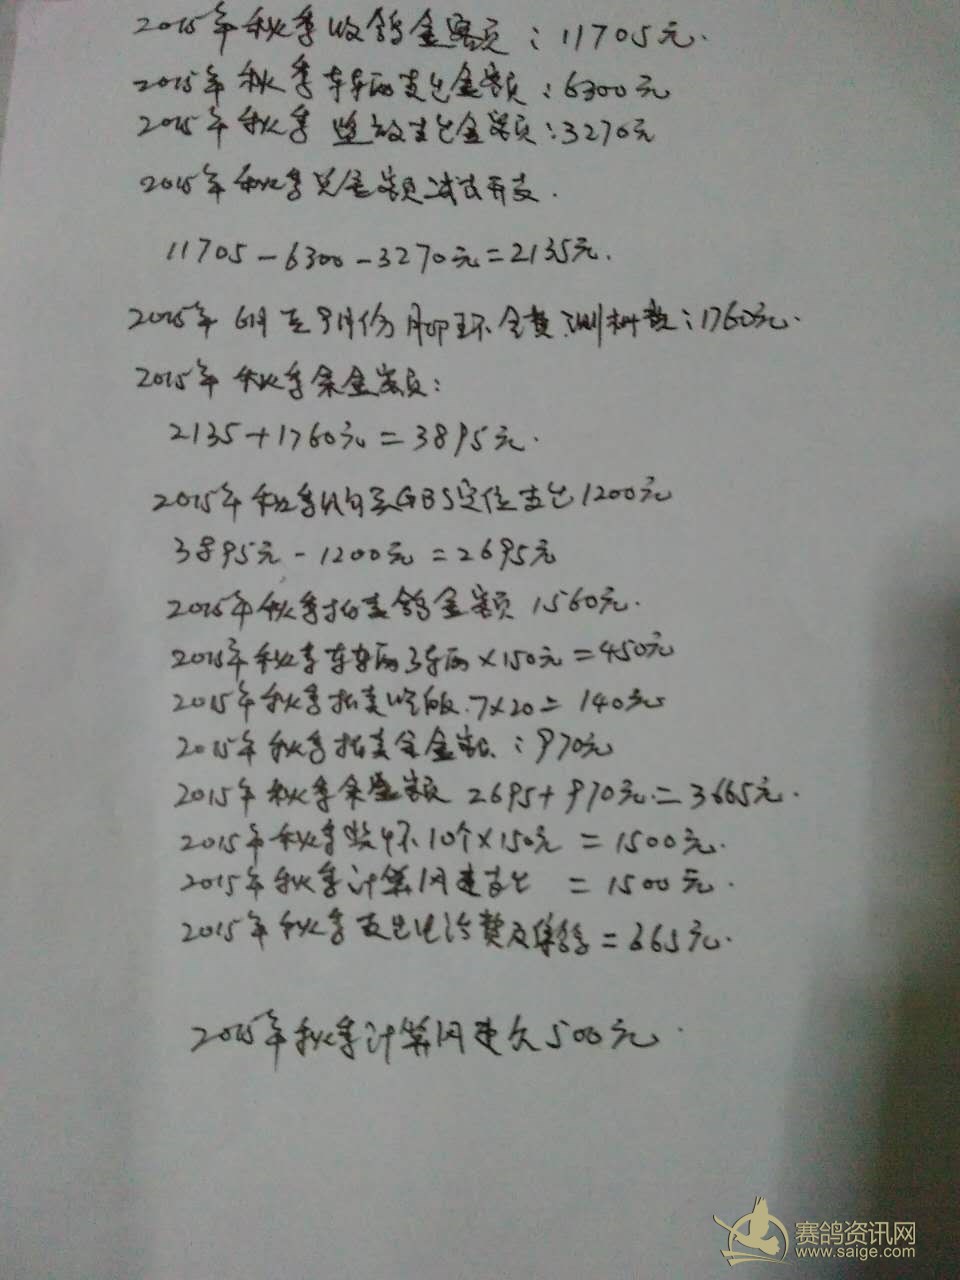 2015年秋季收鸽金额：11705元.
2015年秋季车辆支出金额：6300元
2015年秋季监放支出金额：3270元
2015年秋季总金额减去开支.
11705-6300-3270元=2135元.
2015年6月至9月份足环会费训料费：1760元.
2015年秋季余金额：
2135+1760元=3895元.
2015年秋季购买GBS定位支出1200元
3895元-1200元=2695元
2015年秋季拍卖鸽金额1560元.
2015年秋季车辆3车辆×150元=450元
2015年秋季拍卖吃饭.7×20=140元
2015年秋季拍卖余金额：970元
2015年秋季余金额2695+970元=3665元.
2015年秋季奖杯10个×150元=1500元.
2015年秋季计算网速支出=1500元.
2015年秋季支出电话费及集鸽=665元.
2015年秋季计算网速欠500元.
赛鸽资讯网
www.saige.com